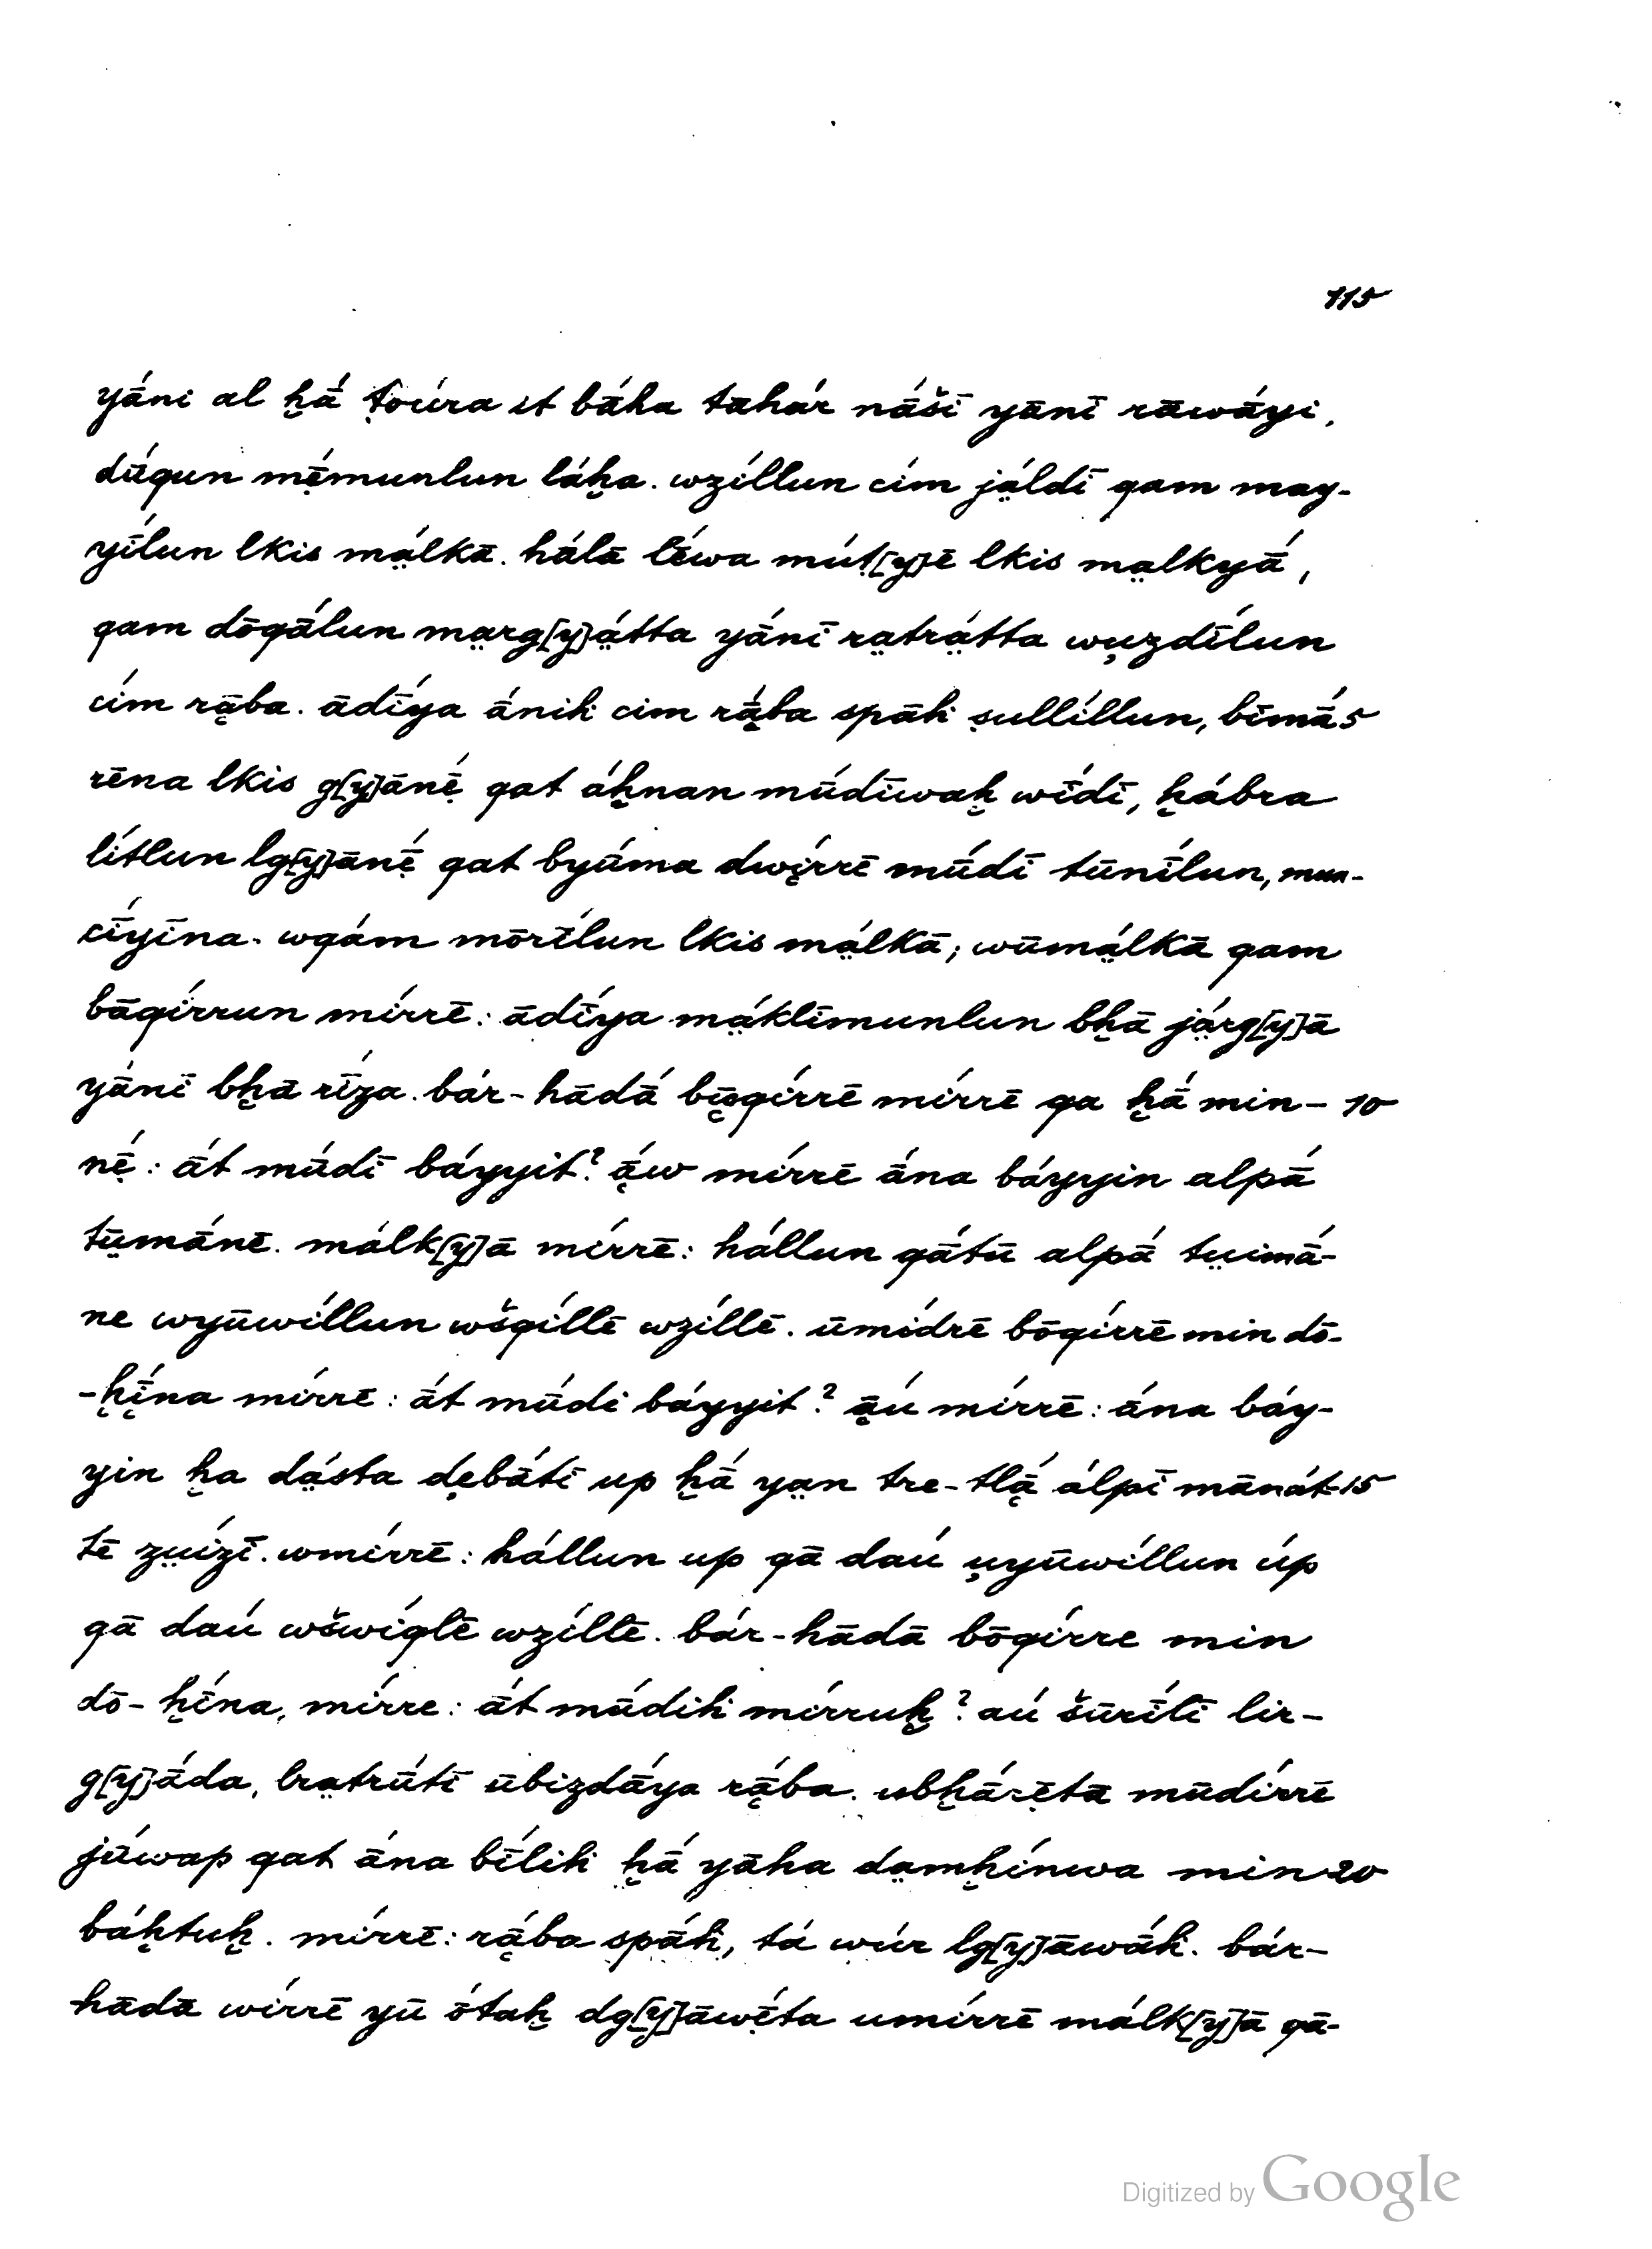 115
yā́ni al ḫā́ ṭoúra it bā́ha tahár nā́šī yānī rāwā́yi,
dū́qun mẹ̄́munlun láḫa. wzíllun cím jạ̈́ldī qam may-
yī́lun lkis mạ̈́lkā. hálā lḗwa múṭ[y]ē lkis mạ̈lkyā́,
qam dōqā́lun mạ̈rg[y]ạ̈́tta yánī rạ̈trạ̈́tta wu̯zdī́lun
cím rā̮ba. ādī́ya ā́nih cim rā̮́ba spāh ṣullíllun, bīmā́- 5
rēna lkis g[y]ānẹ̄́ qat áḫnan mūdīwaḫ wī́dī, ḫábra
lítlun lg[y]ānẹ̄́ qat byū́ma dwi̮rrē mū́dī tūnī́lun, mun-
cī́yīna. wqám mōrī́lun lkis mạ̈́lkā; wūmạ̈́lkā qam
bāqírrun mírrē: ādī́ya mạ̈́klīmunlun bḫā jạ̈́rg[y]ā
yā́nī bḫā rī́za. bár-hādā́ bī̮qírrē mírrē qa ḫā́ min- 10
nẹ̄́: āt mū́dī báyyit? ā̮́w mírrē ā́na báyyin alpā́
tụ̈̄mā́nē. málk[y]ā mírrē: hállun qā́tū alpā́ tụ̈imā́-
ne wyūwíllun wšqíllē wzíllē. ūmídrē bōqírrē min dō-
-ḫī̮́na mírrē: ā́t mūdi báyyit? ā̮ú mírrē: ā́na báy-
yin ḫa dạ̈́sta dẹbā́tī up ḫā́ yạ̈n tre-tlā̮́ álpī mānát- 15
tē zụ̈ízī. wmírrē: hállun up qā daú u̯yūwíllun úp
qā daú wšwíqlē wzíllē. bár-hādā bōqírre min
dō-ḫī́na, mírre: ā́t mūdih mírruḫ? aú šūrī́lī lir-
g[y]ā́da, lrạ̈trū́tī ūbizdā́ya rā̮́ba. ubḫā́rẹ̄tā mūdírrē
jū́wap qat ā́na bī́lih ḫā́ yāha dạ̈mḫínwa min 20
báḫtuḫ. mírrē: rā̮́ba spā́h, tá wúr lg[y]āwā́h. bár-
hādā wírrē yū ṓtaḫ dg[y]āwẹ̄́ta umírrē málk[y]ā qā-
Digitized by Google